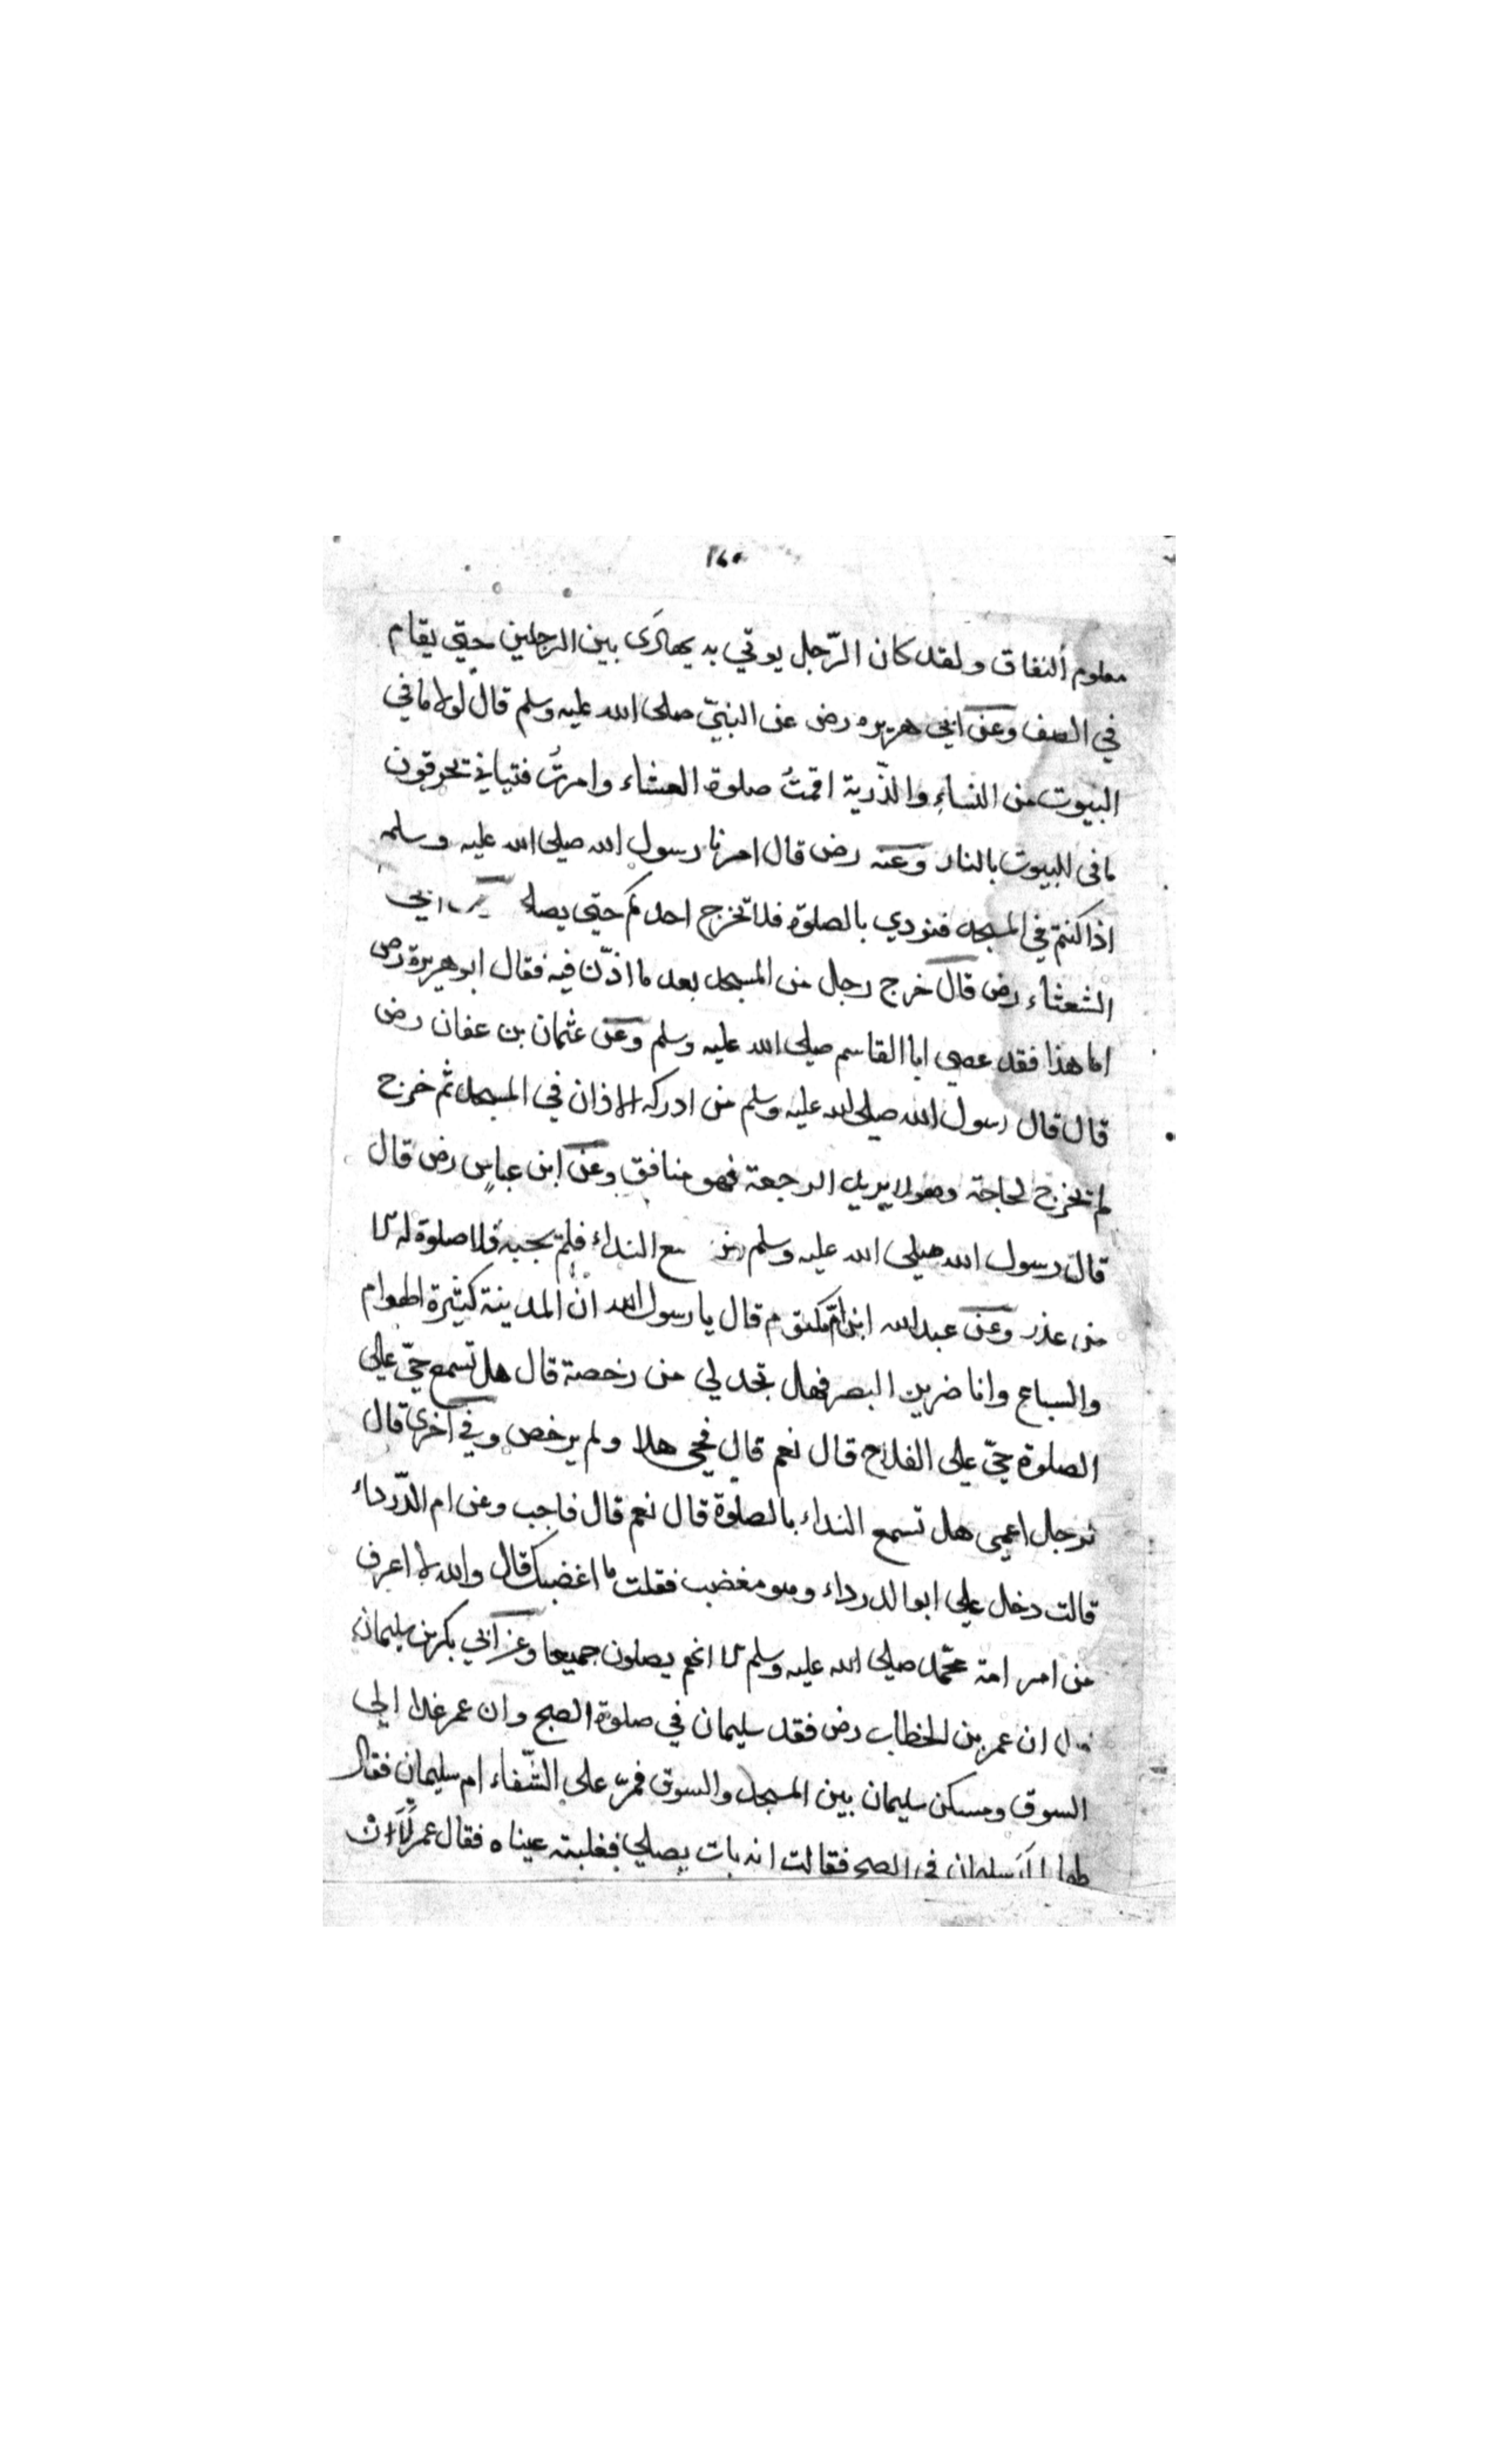 ١٤٠
معلوم النفاق ولقد كان الرّجل يوتي به يهادَى بين الرجلين حتي يقام
في الصف وعن ابي هريره رض عن النبيّ صلى الله عليه وسلم قال لولا ما في
البيوت من النساءِ والذّرية اقمتُ صلوة العشاء وامرتُ فتياني تحرقون
ما في البيوت بالنار وعنه رض قال امرنا رسول الله صلى الله عليه وسلم
اذا كنتم في المسجد فنودي بالصلوة فلا تخرج احدكم حتي يصلي ابي
الشعثاء رض قال خرج رجل من المسجد بعد ما اذّن فيه فقال ابو هريرة رض
اما هذا فقد عصي ابا القاسم صلى الله عليه وسلم وعن عثمان بن عفان رض
قال قال رسول الله صلى الله عليه وسلم من ادركه الاذان في المسجد ثم خرج
لم تخرج لحاجة وهو لا يريد الرجعة فهو منافق وعن ابن عباسٍ رض قال
قال رسول الله صلى الله عليه وسلم من سمع النداء فلم يجبه فلا صلوة له الا
من عذر وعن عبد الله ابن ام مكتوم قال يا رسول الله ان المدينة كثيرة الهوام
والسباع وانا ضرير البصر فهل تجد لي من رخصة قال هل تسمع حيّ على
الصلوة حيّ على الفلاح قال نعم قال فحي هلا ولم يرخص وفي اخرى قال
لرجل اعمي هل تسمع النداء بالصلوة قال نعم قال فاجب وعن ام الدّرداء
قالت دخل علي ابو الدرداء وهو مغضب فقلت ما اغضبك قال والله لا اعرف
من امر امة محمّد صلى الله عليه وسلم الا انهم يصلون جميعا وعن ابي بكر بن سليمان
قال ان عمر بن الخطاب رض فقد سليمان في صلوة الصبح وان عمر غدا الى
السوق ومسكن سليمان بين المسجد والسوق فمرّ على الشّفاء ام سليمان فقال
لها لم ار سليمان في الصبح فقالت انه بات يصلي فغلبته عيناه فقال عمر لَاَن